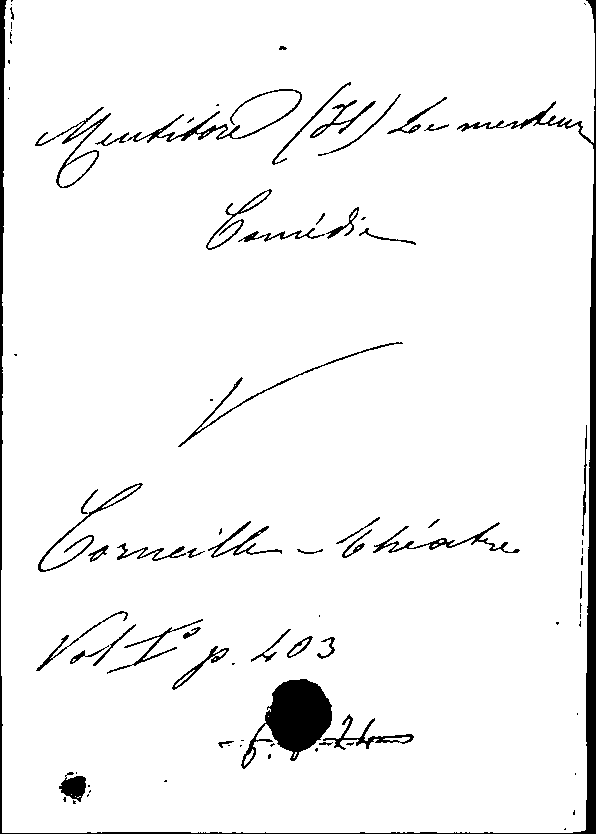 Mentitore (Il) Le menteur
Comédie
V
Corneille - théatre
Vol I° p. 403